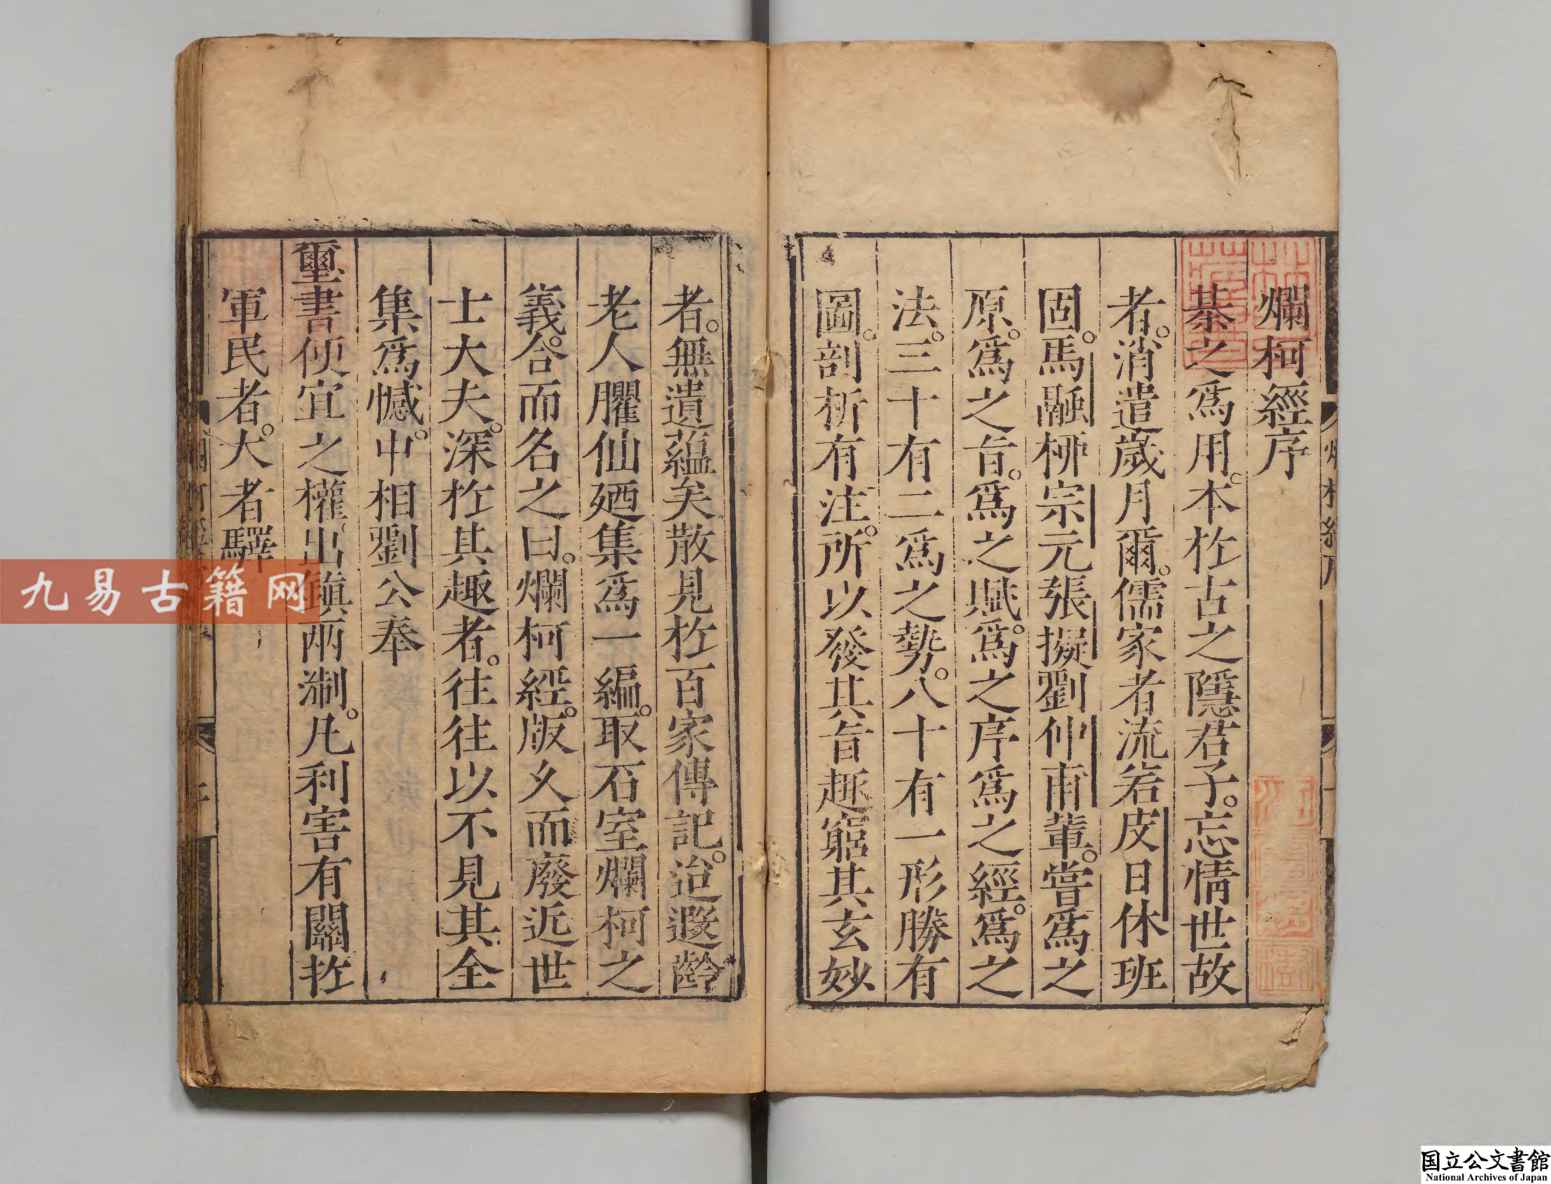 爛柯經序
棊之爲用。本於古之隱君子。忘情世故
者。消遣歲月爾。儒家者流若皮日休班
固。馬融柳宗元張擬劉仲甫輩。嘗爲之
原。爲之旨。爲之賦。爲之序爲之經。爲之
法。三十有二爲之勢。八十有一形勝有
圖。剖析有注。所以發其旨趣窮其玄妙
者。無遺蘊矣散見於百家傳記。迨遐齡
老人臞仙廼集爲一編。取石室爛柯之
義。合而名之曰。爛柯經。版久而廢近世
士大夫。深於其趣者。往往以不見其全
集爲憾。中相劉公奉
璽書便宜之權。出鎮兩淛。凡利害有關於
軍民者。大者驛
九易古籍网
国立公文書館
National Archives of Japan